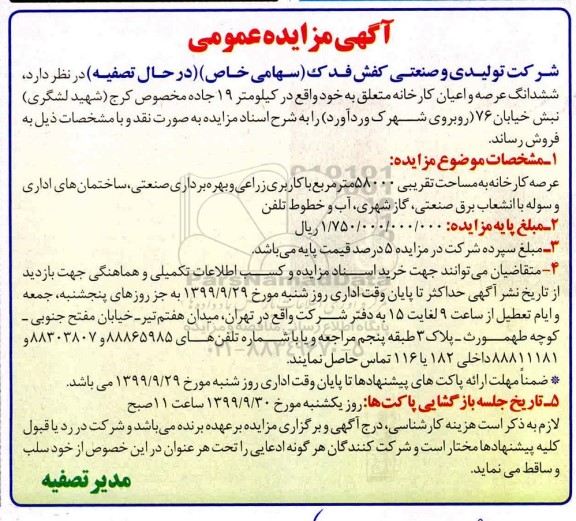 آگهی مزایده عمومی
شرکت تولیدی و صنعتی کفش فدک (سهامی خاص) (در حال تصفیه) در نظر دارد،
ششدانگ عرصه و اعیان کارخانه متعلق به خود واقع در کیلومتر ۱۹ جاده مخصوص کرج (شهید لشگری)
نبش خیابان ۷۶ (روبروی شهرک وردآورد) را به شرح اسناد مزایده به صورت نقد و با مشخصات ذیل به
فروش رساند.
۱ـ مشخصات موضوع مزایده:
عرصه کارخانه به مساحت تقریبی ۵۸۰۰۰ مترمربع با کاربری زراعی و بهره برداری صنعتی، ساختمان های اداری
و سوله با انشعاب برق صنعتی، گاز شهری، آب و خطوط تلفن
۲ـ مبلغ پایه مزایده: ۱/۷۵۰/۰۰۰/۰۰۰/۰۰۰ ریال
۳ـ مبلغ سپرده شرکت در مزایده ۵ درصد قیمت پایه می‌باشد.
۴- متقاضیان می‌توانند جهت خرید اسناد مزایده و کسب اطلاعات تکمیلی و هماهنگی جهت بازدید
از تاریخ نشر آگهی حداکثر تا پایان وقت اداری روز شنبه مورخ ۱۳۹۹/۹/۲۹ به جز روزهای پنجشنبه، جمعه
و ایام تعطیل از ساعت ۹ لغایت ۱۵ به دفتر شرکت واقع در تهران، میدان هفتم تیر ـ خیابان مفتح جنوبی ـ
کوچه طهمورث ـ پلاک ۳ طبقه پنجم مراجعه و یا با شماره تلفن های ۸۸۸۶۵۹۸۵ و ۸۸۳۰۳۸۰۷ و
۸۸۸۱۱۱۸۱ داخلی ۱۸۲ یا ۱۱۶ تماس حاصل نمایند.
* ضمناً مهلت ارائه پاکت های پیشنهادها تا پایان وقت اداری روز شنبه مورخ ۱۳۹۹/۹/۲۹ می باشد.
۵ـ تاریخ جلسه بازگشایی پاکت‌ها: روز یکشنبه مورخ ۱۳۹۹/۹/۳۰ ساعت ۱۱ صبح
لازم به ذکر است هزینه کارشناسی، درج آگهی و برگزاری مزایده بر عهده برنده می‌باشد و شرکت در رد یا قبول
کلیه پیشنهادها مختار است و شرکت کنندگان هر گونه ادعایی را تحت هر عنوان در این خصوص از خود سلب
و ساقط می نماید.
مدیر تصفیه